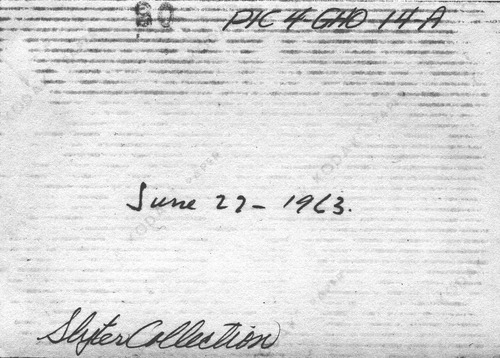 PIC 4 GHO 14 A
June 27- 1963.
Slyter Collection
KODAK PAPER